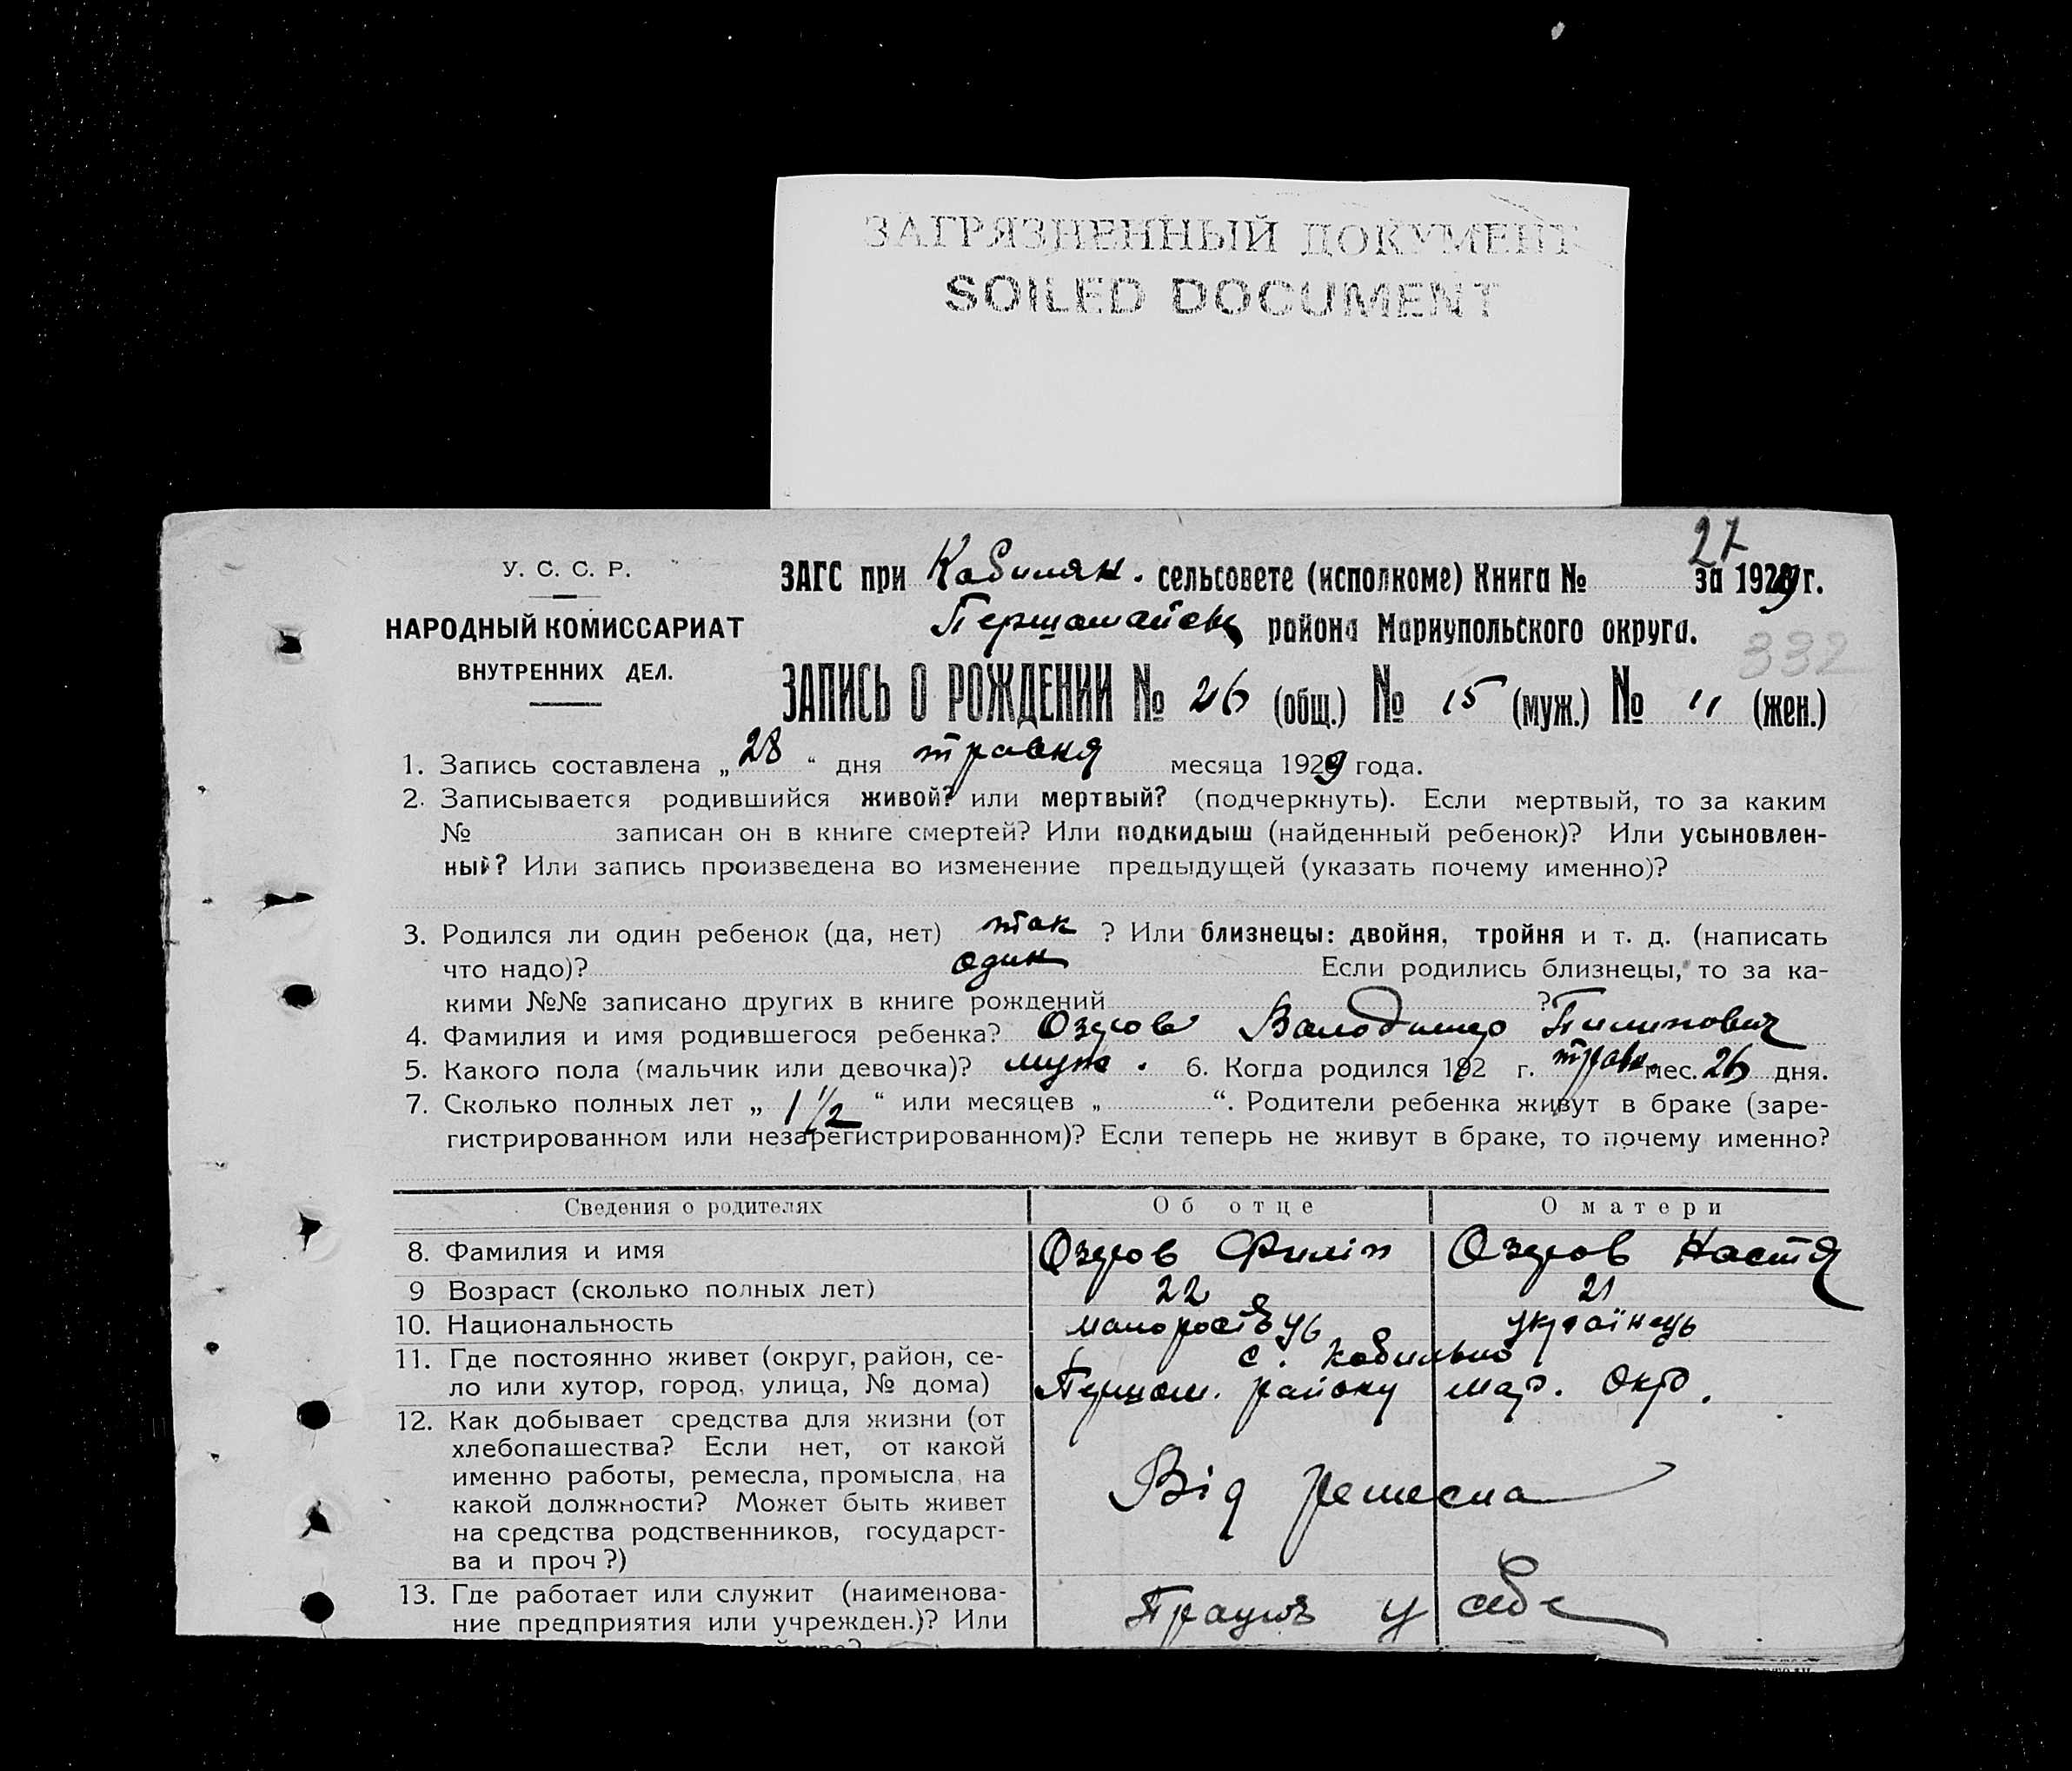 ЗАГРЯЗНЕННЫЙ ДОКУМЕНТ
SOILED DOCUMENT
27
У. С. С. Р.
НАРОДНЫЙ КОМИССАРИАТ
ВНУТРЕННИХ ДЕЛ.
ЗАГС при Кобилян. сельсовете (исполкоме) Книга № за 1929 г.
Першомайськ района Мариупольского округа.
332
ЗАПИСЬ О РОЖДЕНИИ № 26 (общ.) № 15 (муж.) № 11 (жен.)
1. Запись составлена „28“ дня травня месяца 1929 года.
2. Записывается родившийся живой? или мертвый? (подчеркнуть). Если мертвый, то за каким
№ записан он в книге смертей? Или подкидыш (найденный ребенок)? Или усыновлен-
ный? Или запись произведена во изменение предыдущей (указать почему именно)?
3. Родился ли один ребенок (да, нет) так ? Или близнецы: двойня, тройня и т. д. (написать
что надо)? один Если родились близнецы, то за ка-
кими №№ записано других в книге рождений ?
4. Фамилия и имя родившегося ребенка? Озеров Володимир Пилипович
5. Какого пола (мальчик или девочка)? муж. 6. Когда родился 192 г. травн. мес. 26 дня.
7. Сколько полных лет „ 1 1/2 “ или месяцев „ “. Родители ребенка живут в браке (заре-
гистрированном или незарегистрированном)? Если теперь не живут в браке, то почему именно?
Сведения о родителях Об отце О матери
8. Фамилия и имя Озеров Филіп Озеров Настя
9 Возраст (сколько полных лет) 22 21
10. Национальность украінець
11. Где постоянно живет (округ, район, се- с. Кобильно
ло или хутор, город, улица, № дома) Першом. району мар. Окр.
12. Как добывает средства для жизни (от
хлебопашества? Если нет, от какой
именно работы, ремесла, промысла, на Від ремесла
какой должности? Может быть живет
на средства родственников, государст-
ва и проч?)
13. Где работает или служит (наименова- Працює у себе
ние предприятия или учрежден.)? Или